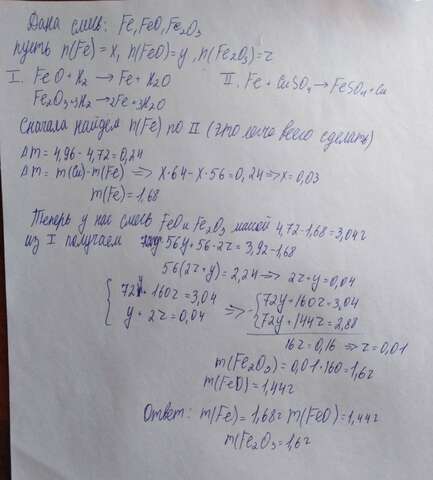 Дана смесь: Fe, FeO, Fe₂O₃
пусть n(Fe)=x, n(FeO)=y, n(Fe₂O₃)=z
I. FeO+H₂ → Fe+H₂O II. Fe+CuSO₄→FeSO₄+Cu
Fe₂O₃+3H₂ → 2Fe+3H₂O
Сначала найдем n(Fe) по II (это легче всего сделать)
Δm = 4,96-4,72=0,24
Δm = m(Cu)-m(Fe) ⇒ x·64-x·56=0,24⇒x=0,03
m(Fe)=1,68
Теперь у нас смесь FeO и Fe₂O₃ массой 4,72-1,68=3,04г
из I получаем 56y+56·2z=3,92-1,68
56(2z+y)=2,24 ⇒ 2z+y=0,04
{ 72y+160z=3,04 ⇒ { 72y+160z=3,04
y+2z=0,04 72y+144z=2,88
16z=0,16 ⇒ z=0,01
m(Fe₂O₃)=0,01·160=1,6г
m(FeO)=1,44г
Ответ: m(Fe)=1,68г m(FeO)=1,44г
m(Fe₂O₃=1,6г